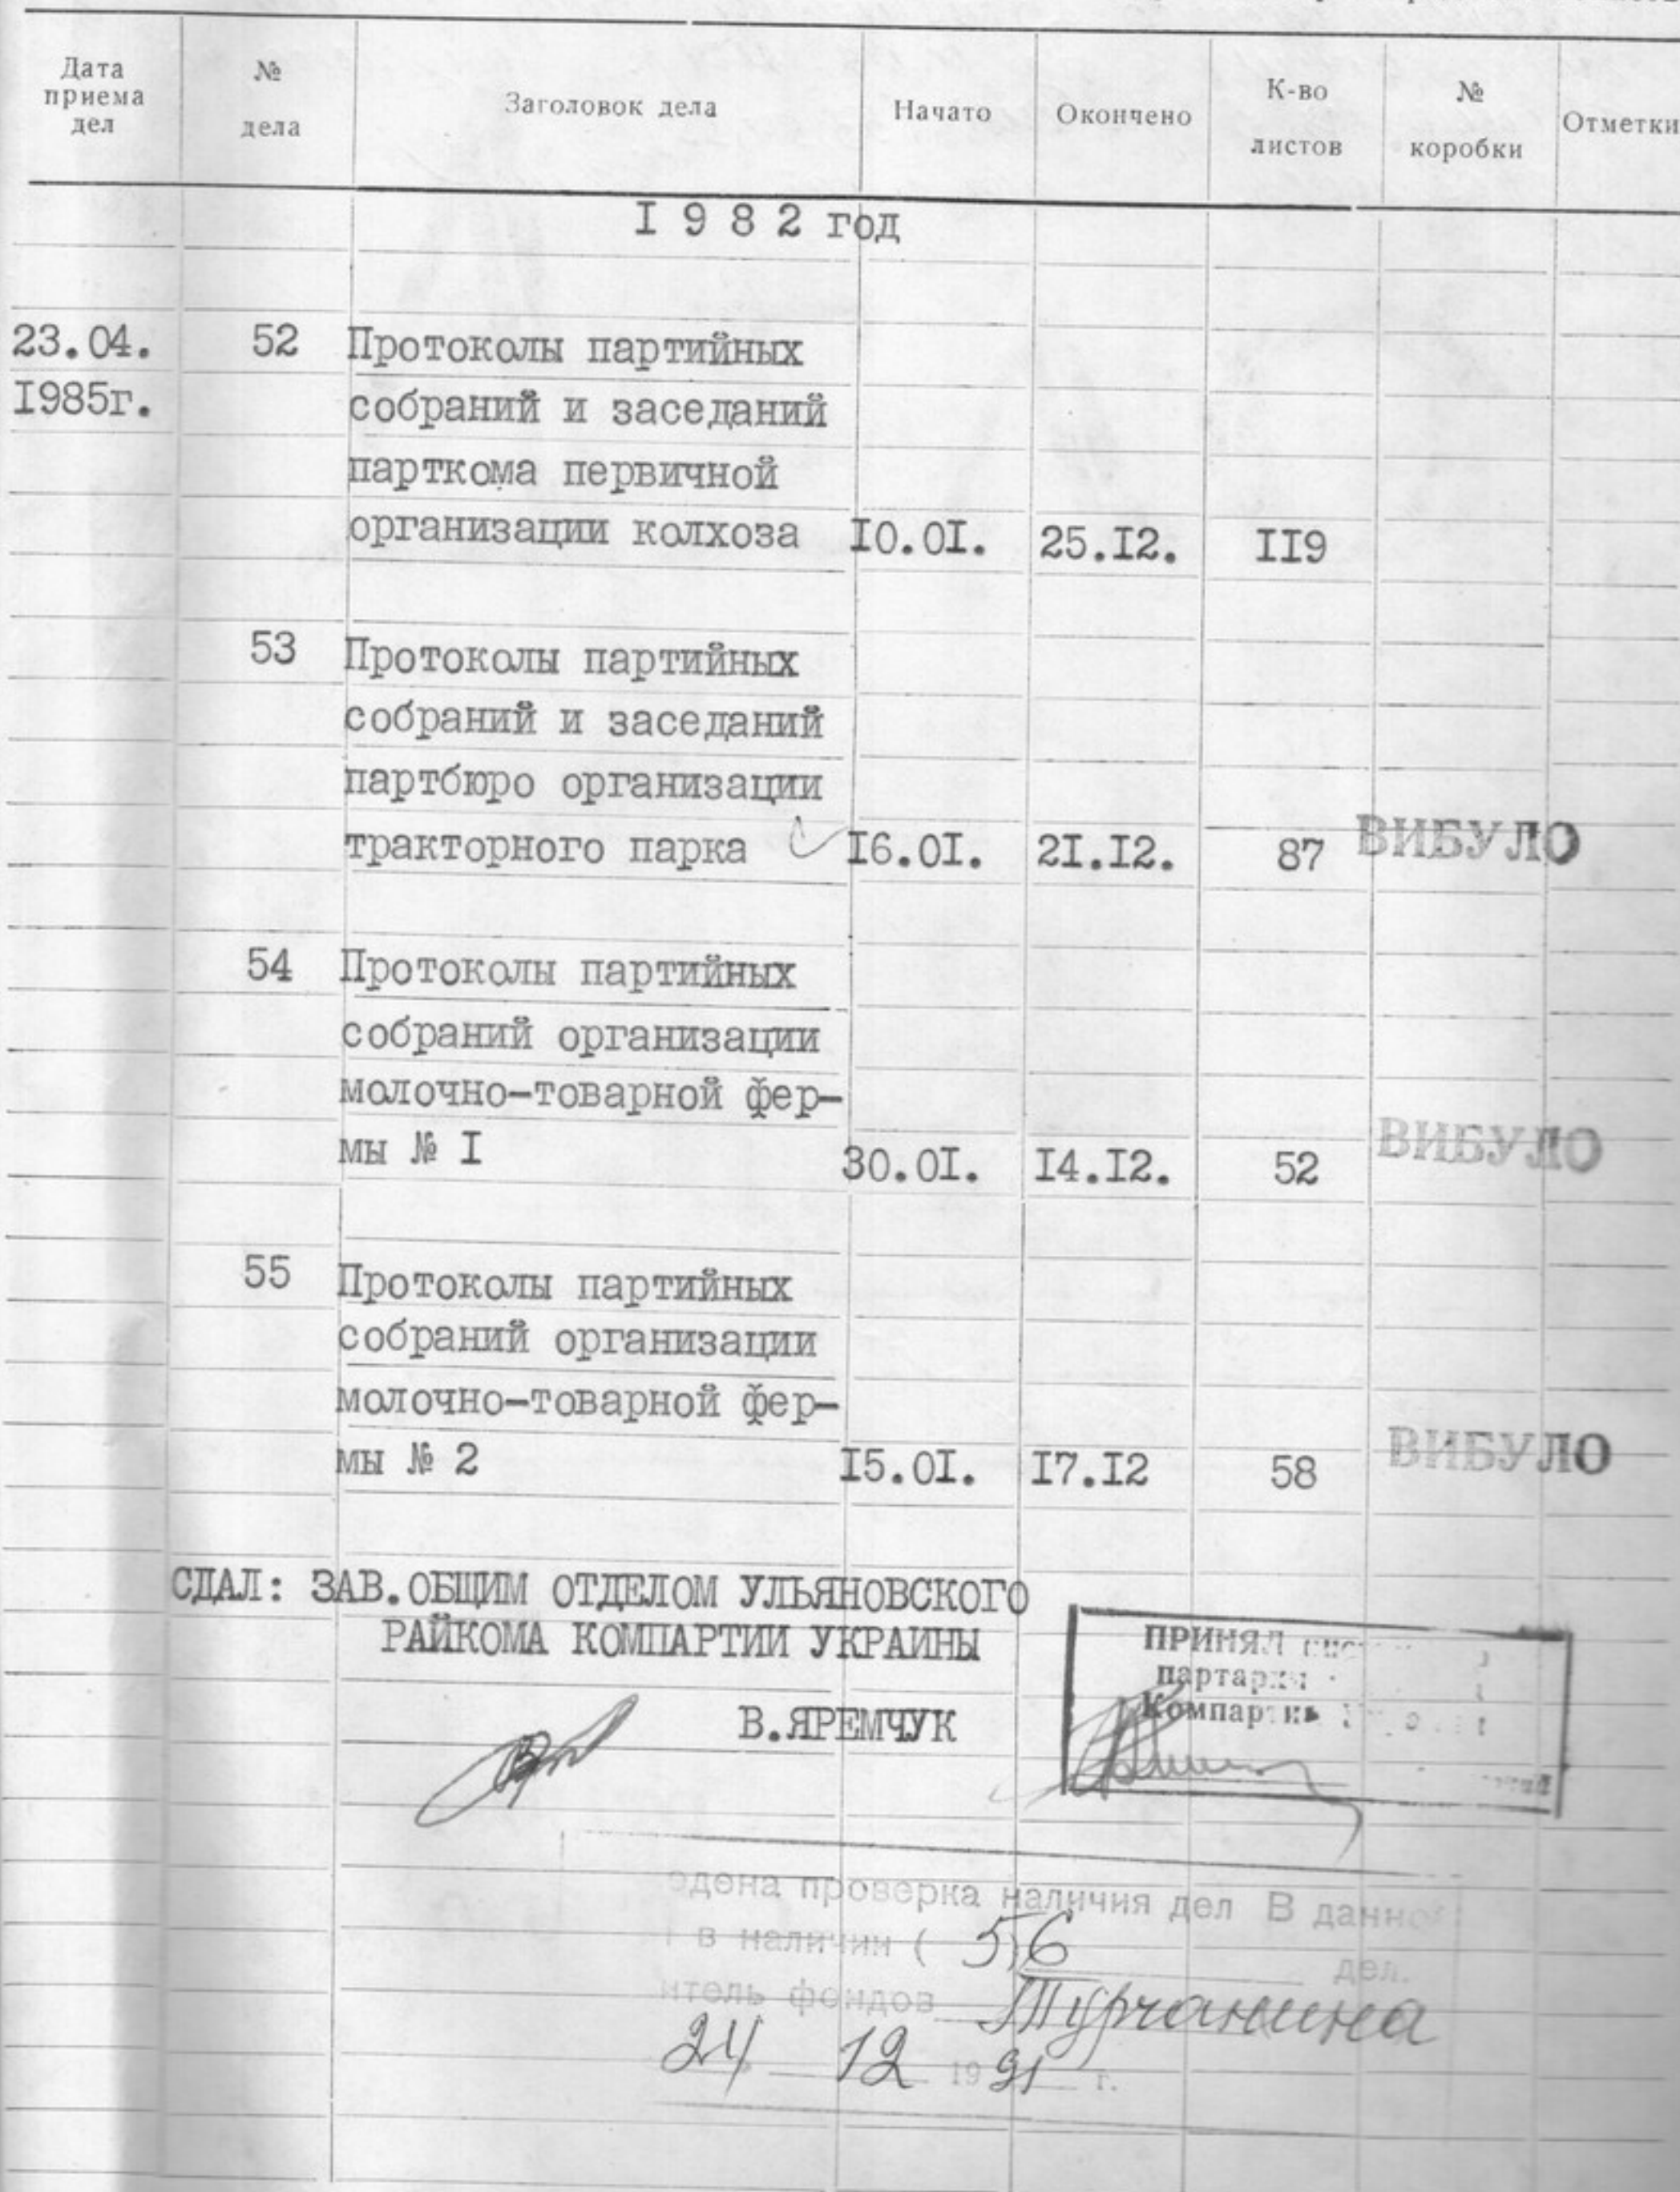 Дата приема дел
№ дела
Заголовок дела
Начато
Окончено
К-во листов
№ коробки
Отметки
I 9 8 2 год
23.04. 52 Протоколы партийных
I985г. собраний и заседаний
парткома первичной
организации колхоза I0.0I. 25.I2. II9
53 Протоколы партийных
собраний и заседаний
партбюро организации
тракторного парка I6.0I. 2I.I2. 87 ВИБУЛО
54 Протоколы партийных
собраний организации
молочно-товарной фер-
мы № I 30.0I. I4.I2. 52 ВИБУЛО
55 Протоколы партийных
собраний организации
молочно-товарной фер-
мы № 2 I5.0I. I7.I2 58 ВИБУЛО
СДАЛ: ЗАВ.ОБЩИМ ОТДЕЛОМ УЛЬЯНОВСКОГО
РАЙКОМА КОМПАРТИИ УКРАИНЫ
В.ЯРЕМЧУК
ПРИНЯЛ
Компартии
проверка наличия дел В
в наличии ( 56 дел.
фондов Турчанина
24 12 1991 г.